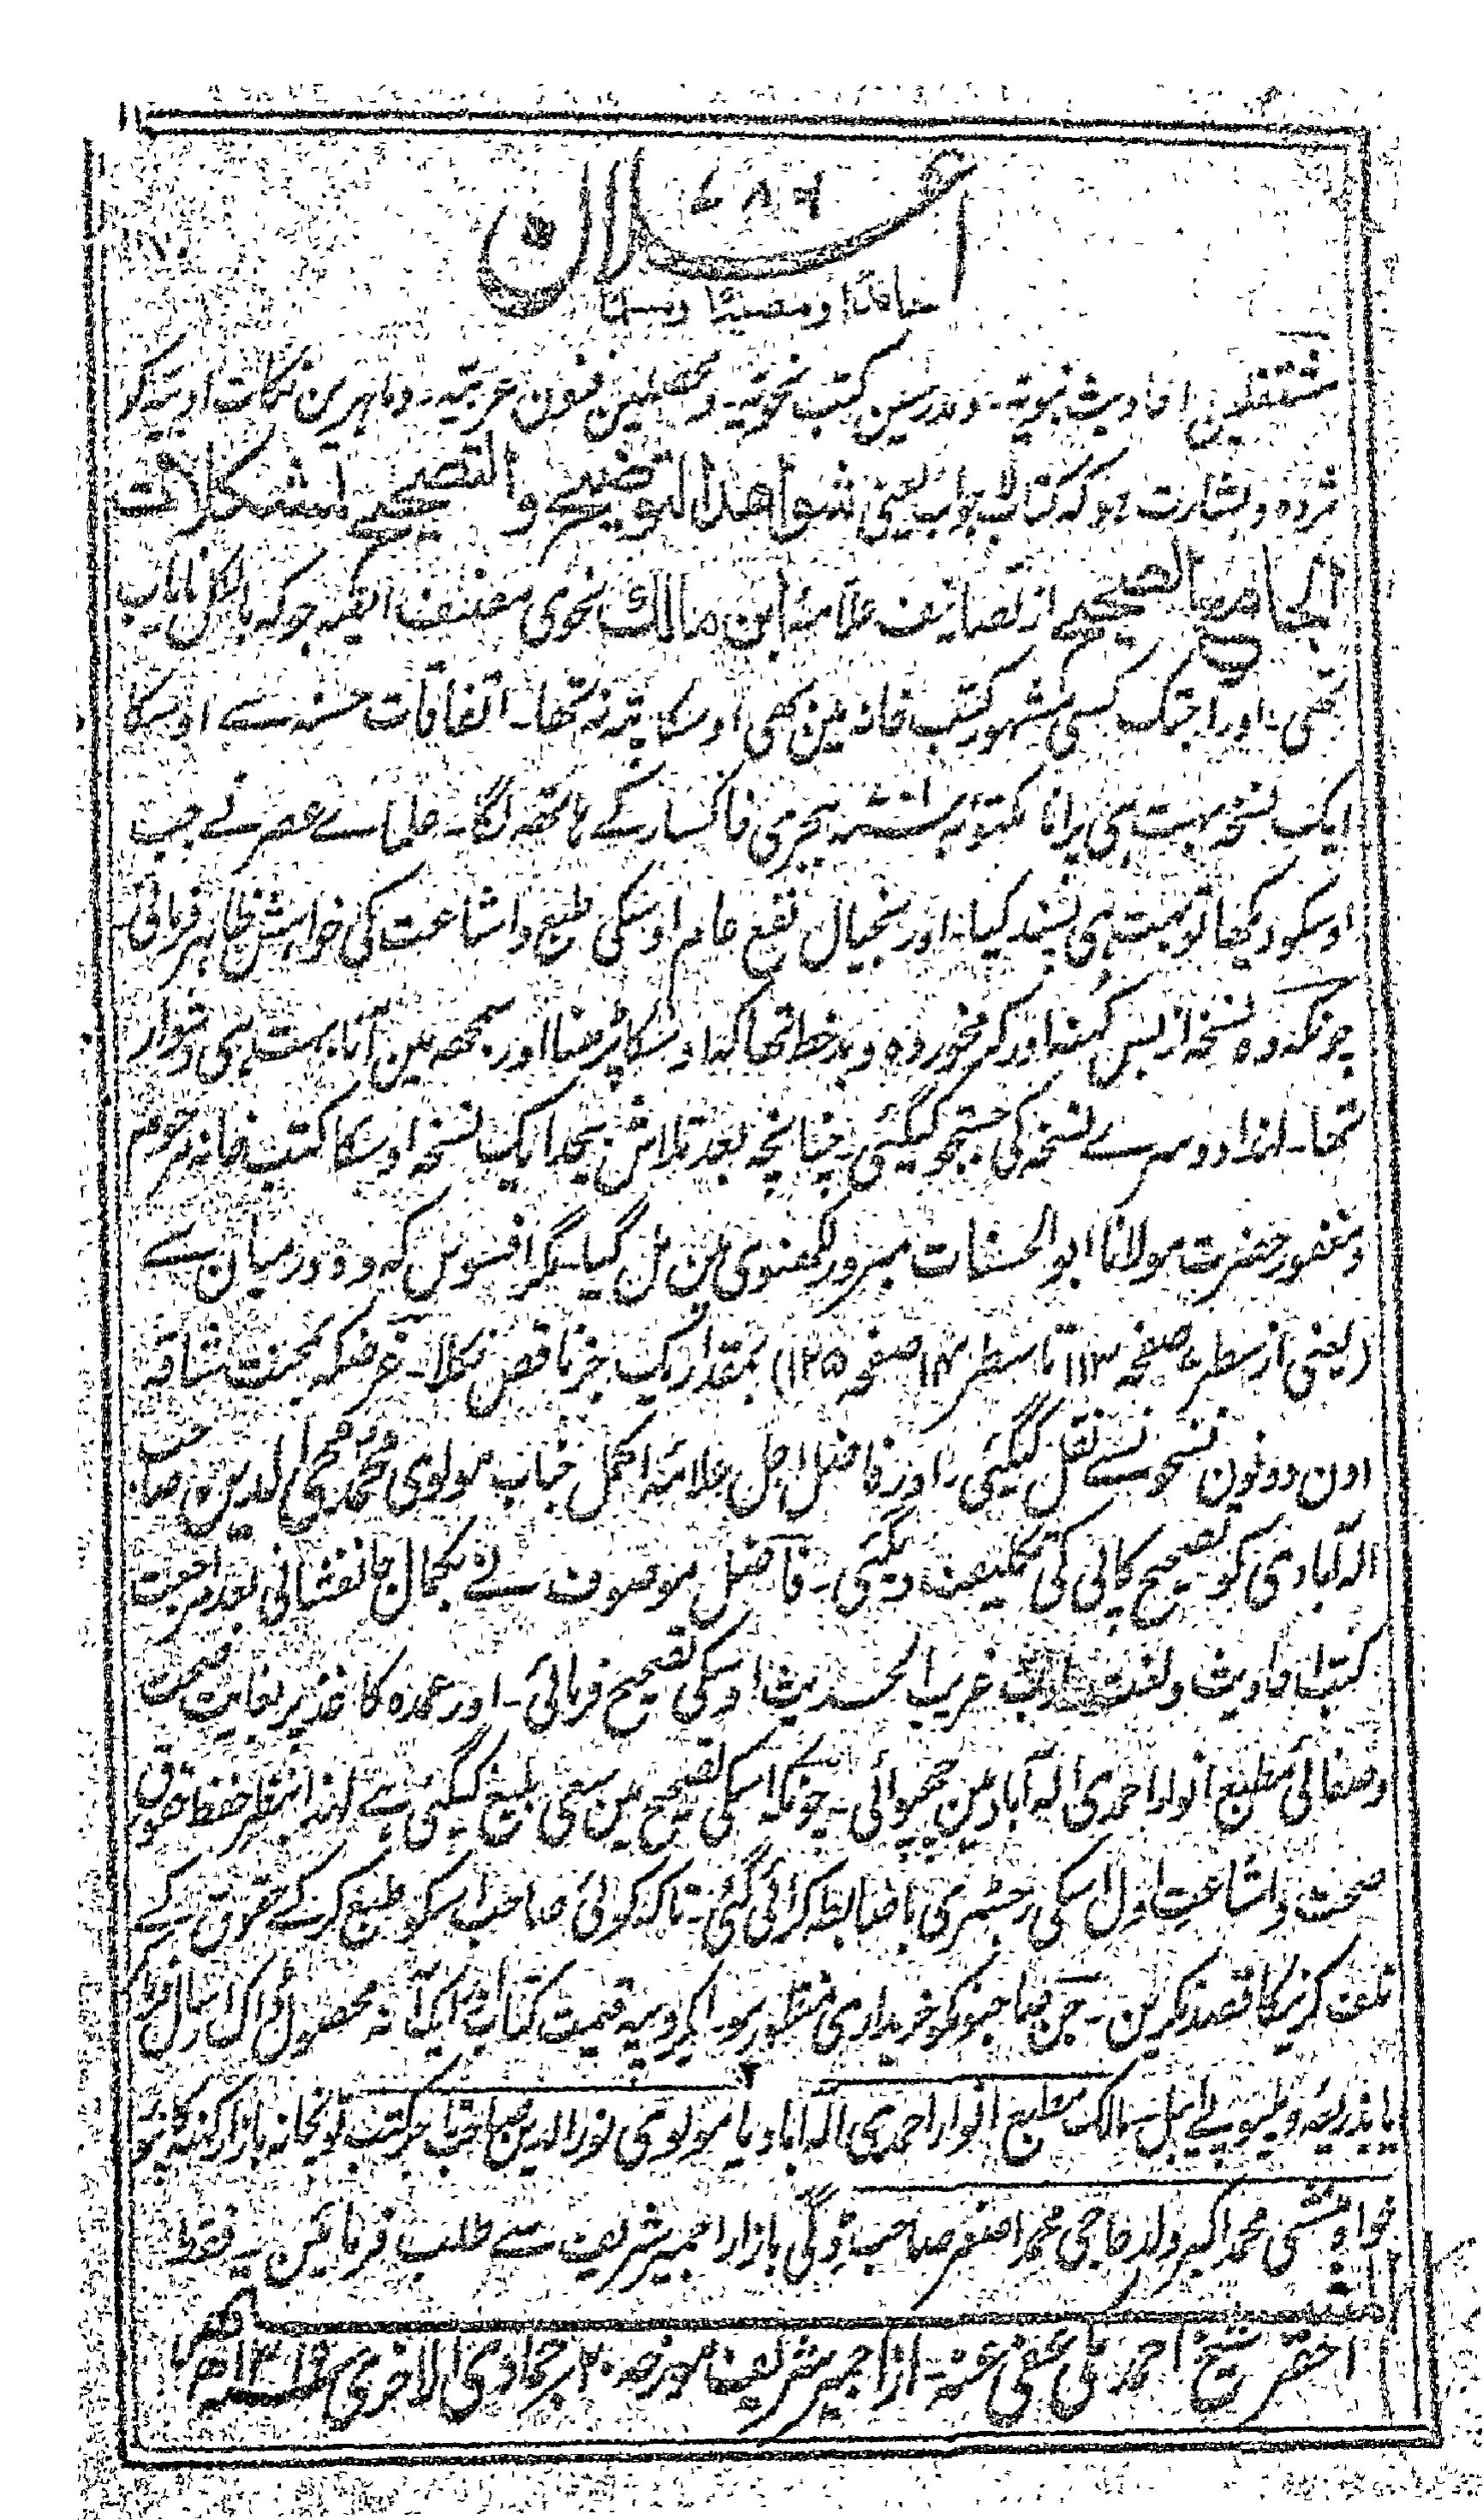 ۷۸۶
اعلان
حامدًا ومصلیًا ومسلمًا
مشتغلین احادیث نبویہ۔ ومدرسین کتب نحویہ۔ ومحصلین فنون عربیہ۔ وماہرین نکات ادبیہ کو
مژدہ وبشارت ہو کہ کتاب لاجواب یعنی شواهد التوضیح والتصحیح لمشکلات
الجامع الصحیح از تصانیف علامۂ ابن مالک نحوی مصنف الفیہ جو کہ بالکل نایاب
تھی۔ اور اجتک کسی مشہور کتب خانہ مین بھی اوسکا پتہ نہ تھا۔ اتفاقات حسنہ سے اوسکا
ایک نسخہ بہت ہی پرانا مکتوبہ ہجری خاکسار کے ہاتھ لگا۔ علماے عصر نے جب
اوسکو دیکھا تو بہت ہی پسند کیا۔ اور بخیال نفع عام اوسکی طبع واشاعت کی خواہش ظاہر فرمائی
چونکہ وہ نسخہ از بس کہنہ اور کرمخوردہ وبدخط تھا کہ اوسکا پڑھنا اور سمجھ مین آنا بہت ہی دشوار
تھا۔ لہذا دوسرے نسخہ کی جستجو کیگئی۔ چنانچہ بعد تلاش بیحد ایک نسخہ اوسکا کتب خانہ مرحوم
ومغفور حضرت مولانا ابوالحسنات مبرور لکھنوی مین مل گیا۔ مگر افسوس کہ وہ درمیان سے
(یعنی از سطر ۷ صفحہ ۱۱۳ تا سطر ۱۴ صفحہ ۱۲۵) بمقدار یک جز ناقص نکلا۔ غرضکہ بمحنت شاقہ
اون دونون نسخونسے نقل کیگئی۔ اور فاضل اجل علامۂ اکمل جناب مولوی محمد محی الدین صاحب
الہ آبادی کو تصحیح کاپی کی تکلیف دیگئی۔ فاضل موصوف نے بکمال جانفشانی بعد مراجعت
کتب احادیث ولغت غریب الحدیث اوسکی تصحیح فرمائی۔ اور عمدہ کاغذ پر بغایت صحت
وصفائی مطبع انوار احمدی الہ آباد مین چھپوائی۔ چونکہ اسکی تصحیح مین سعی بلیغ کیگئی ہے لہذا بنظر حفظ حقوق
صحت واشاعت اول اسکی رجسٹری باضابطہ کرائی گئی۔ تاکہ کوئی صاحب اسکو طبع کرکے حقوق کے
تلف کرنیکا قصد نکرین۔ جن صاحبونکو خریداری منظور ہو ایکروپیہ قیمت کتاب ایک آنہ محصول ڈاک ارسال فرماکر
یا بذریعہ ویلیو پے ایبل مالک مطبع انوار احمدی الہ آباد یا مولوی نورالدین صاحب تاجر کتب توپخانہ بازار کہنہ کانپور
خواہ منشی محمد اکبر ولد حاجی محمد اصغر صاحب ڈگی بازار اجمیر شریف سے طلب فرمائین۔ فقط
المشتہر
احقر شیخ احمد علی عفی عنہ۔ از اجمیر شریف مورخہ ۲۰ جمادی الاخری ۱۳۱۹ھ